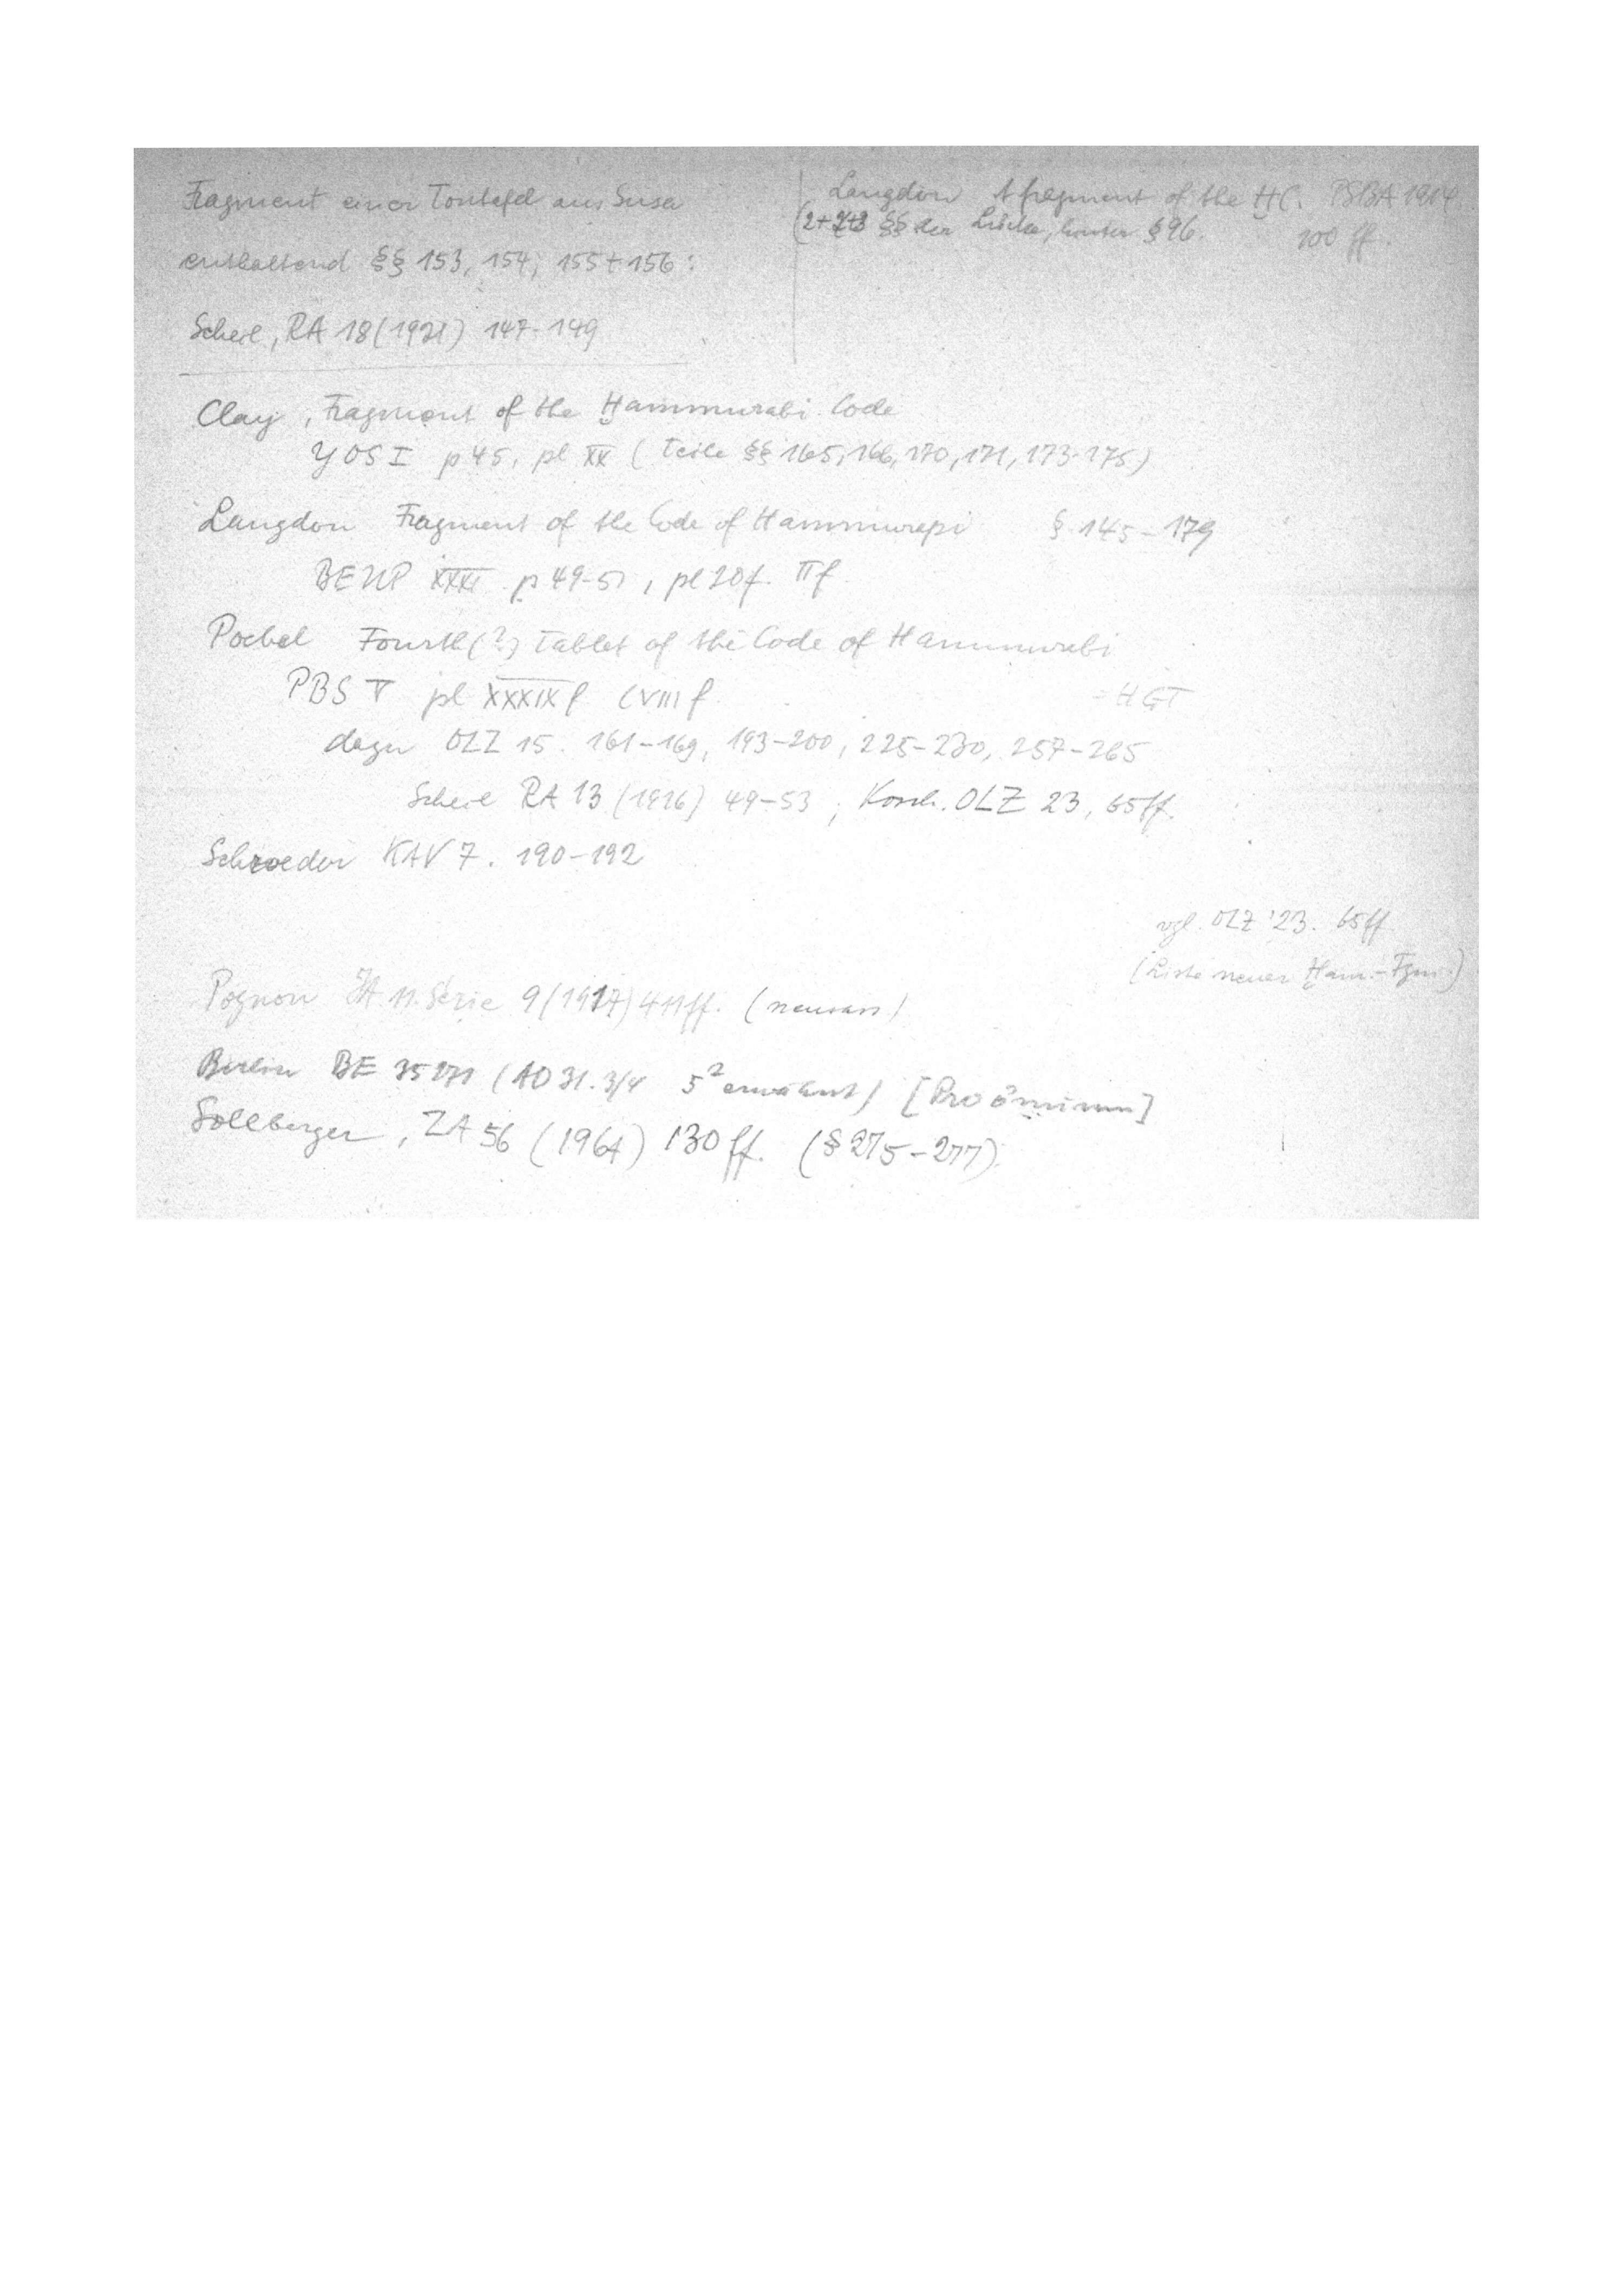 Fragment einer Tontafel aus Susa
enthaltend §§ 153, 154, 155+156:
Scheil, RA 18 (1921) 147-149
Langdon A fragment of the ḪC. PSBA 1914
(2+2+3 §§ der Lücke, hinter § 96. 100 ff.
Clay, Fragment of the Ḫammurabi Code
YOS I p 45, pl XX (Teile §§ 165, 166, 170, 171, 173-175)
Langdon Fragment of the Code of Hammurapi § 145-179
BEUP XXXI p 49-51, pl 20f. IIf
Poebel Fourth(?) Tablet of the Code of Hammurabi
PBS V pl XXXIX f CVIII f. = HGT
dazu OLZ 15. 161-169, 193-200, 225-230, 257-265
Scheil RA 13 (1916) 49-53; Kosch. OLZ 23, 65ff.
Schroeder KAV 7. 190-192
vgl. OLZ '23. 65ff
(Liste neuer Ḫam.-Fgm.)
Pognon JA 11. Série 9 (1917) 411ff. (neuass)
Berlin BE 35271 (AO 31. 3/4 5² erwähnt) [Proömium]
Sollberger, ZA 56 (1964) 130ff. (§ 275-277).